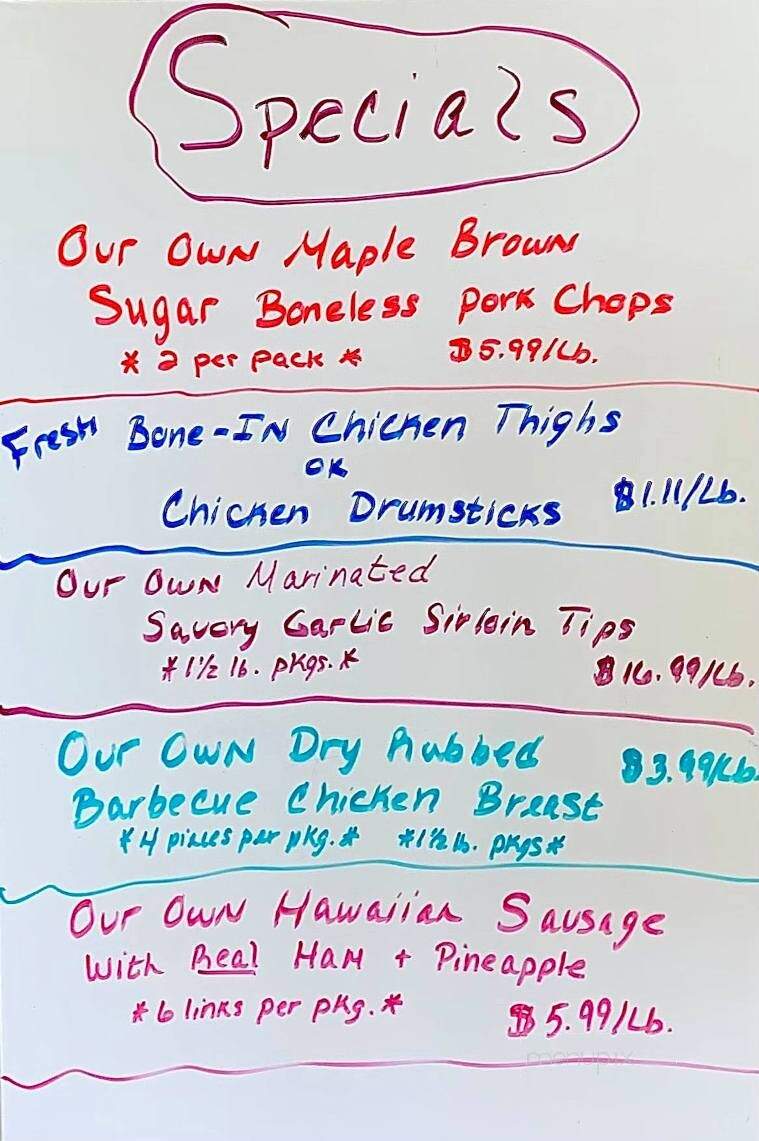 Specials
Our Own Maple Brown
Sugar Boneless Pork Chops
* 2 per pack * $5.99/Lb.
Fresh Bone-In Chicken Thighs
OR
Chicken Drumsticks $1.11/Lb.
Our Own Marinated
Savory Garlic Sirloin Tips
*1½ lb. pkgs.* $16.99/Lb.
Our Own Dry Rubbed $3.99/Lb.
Barbecue Chicken Breast
*4 pieces per pkg.* *1½ lb. pkgs*
Our Own Hawaiian Sausage
With Real Ham + Pineapple
*6 links per pkg.* $5.99/Lb.
menupix